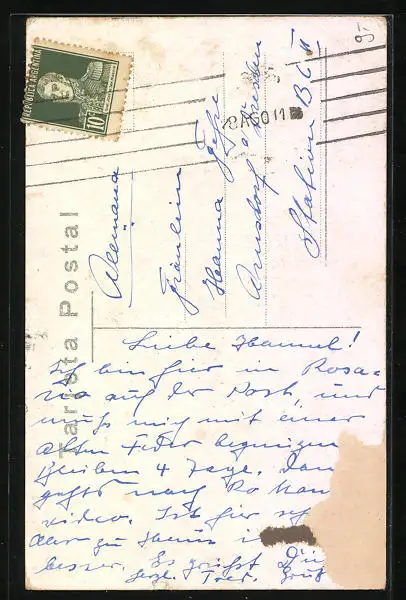 REPUBLICA ARGENTINA
10c
Tarjeta Postal
Alemania
Fräulein
Hanna
Arnsdorf Dresden
Station B
Liebe Hannel!
Ich bin hier in Rosa-
rio auf der Post, und
muß mich mit einer
alten Feder begnügen
Bleiben 4 Tage. Dan
gehts nach Mon
video. Ist hier
Aber zu Haus
besser. Es grüßt Di
herzl.